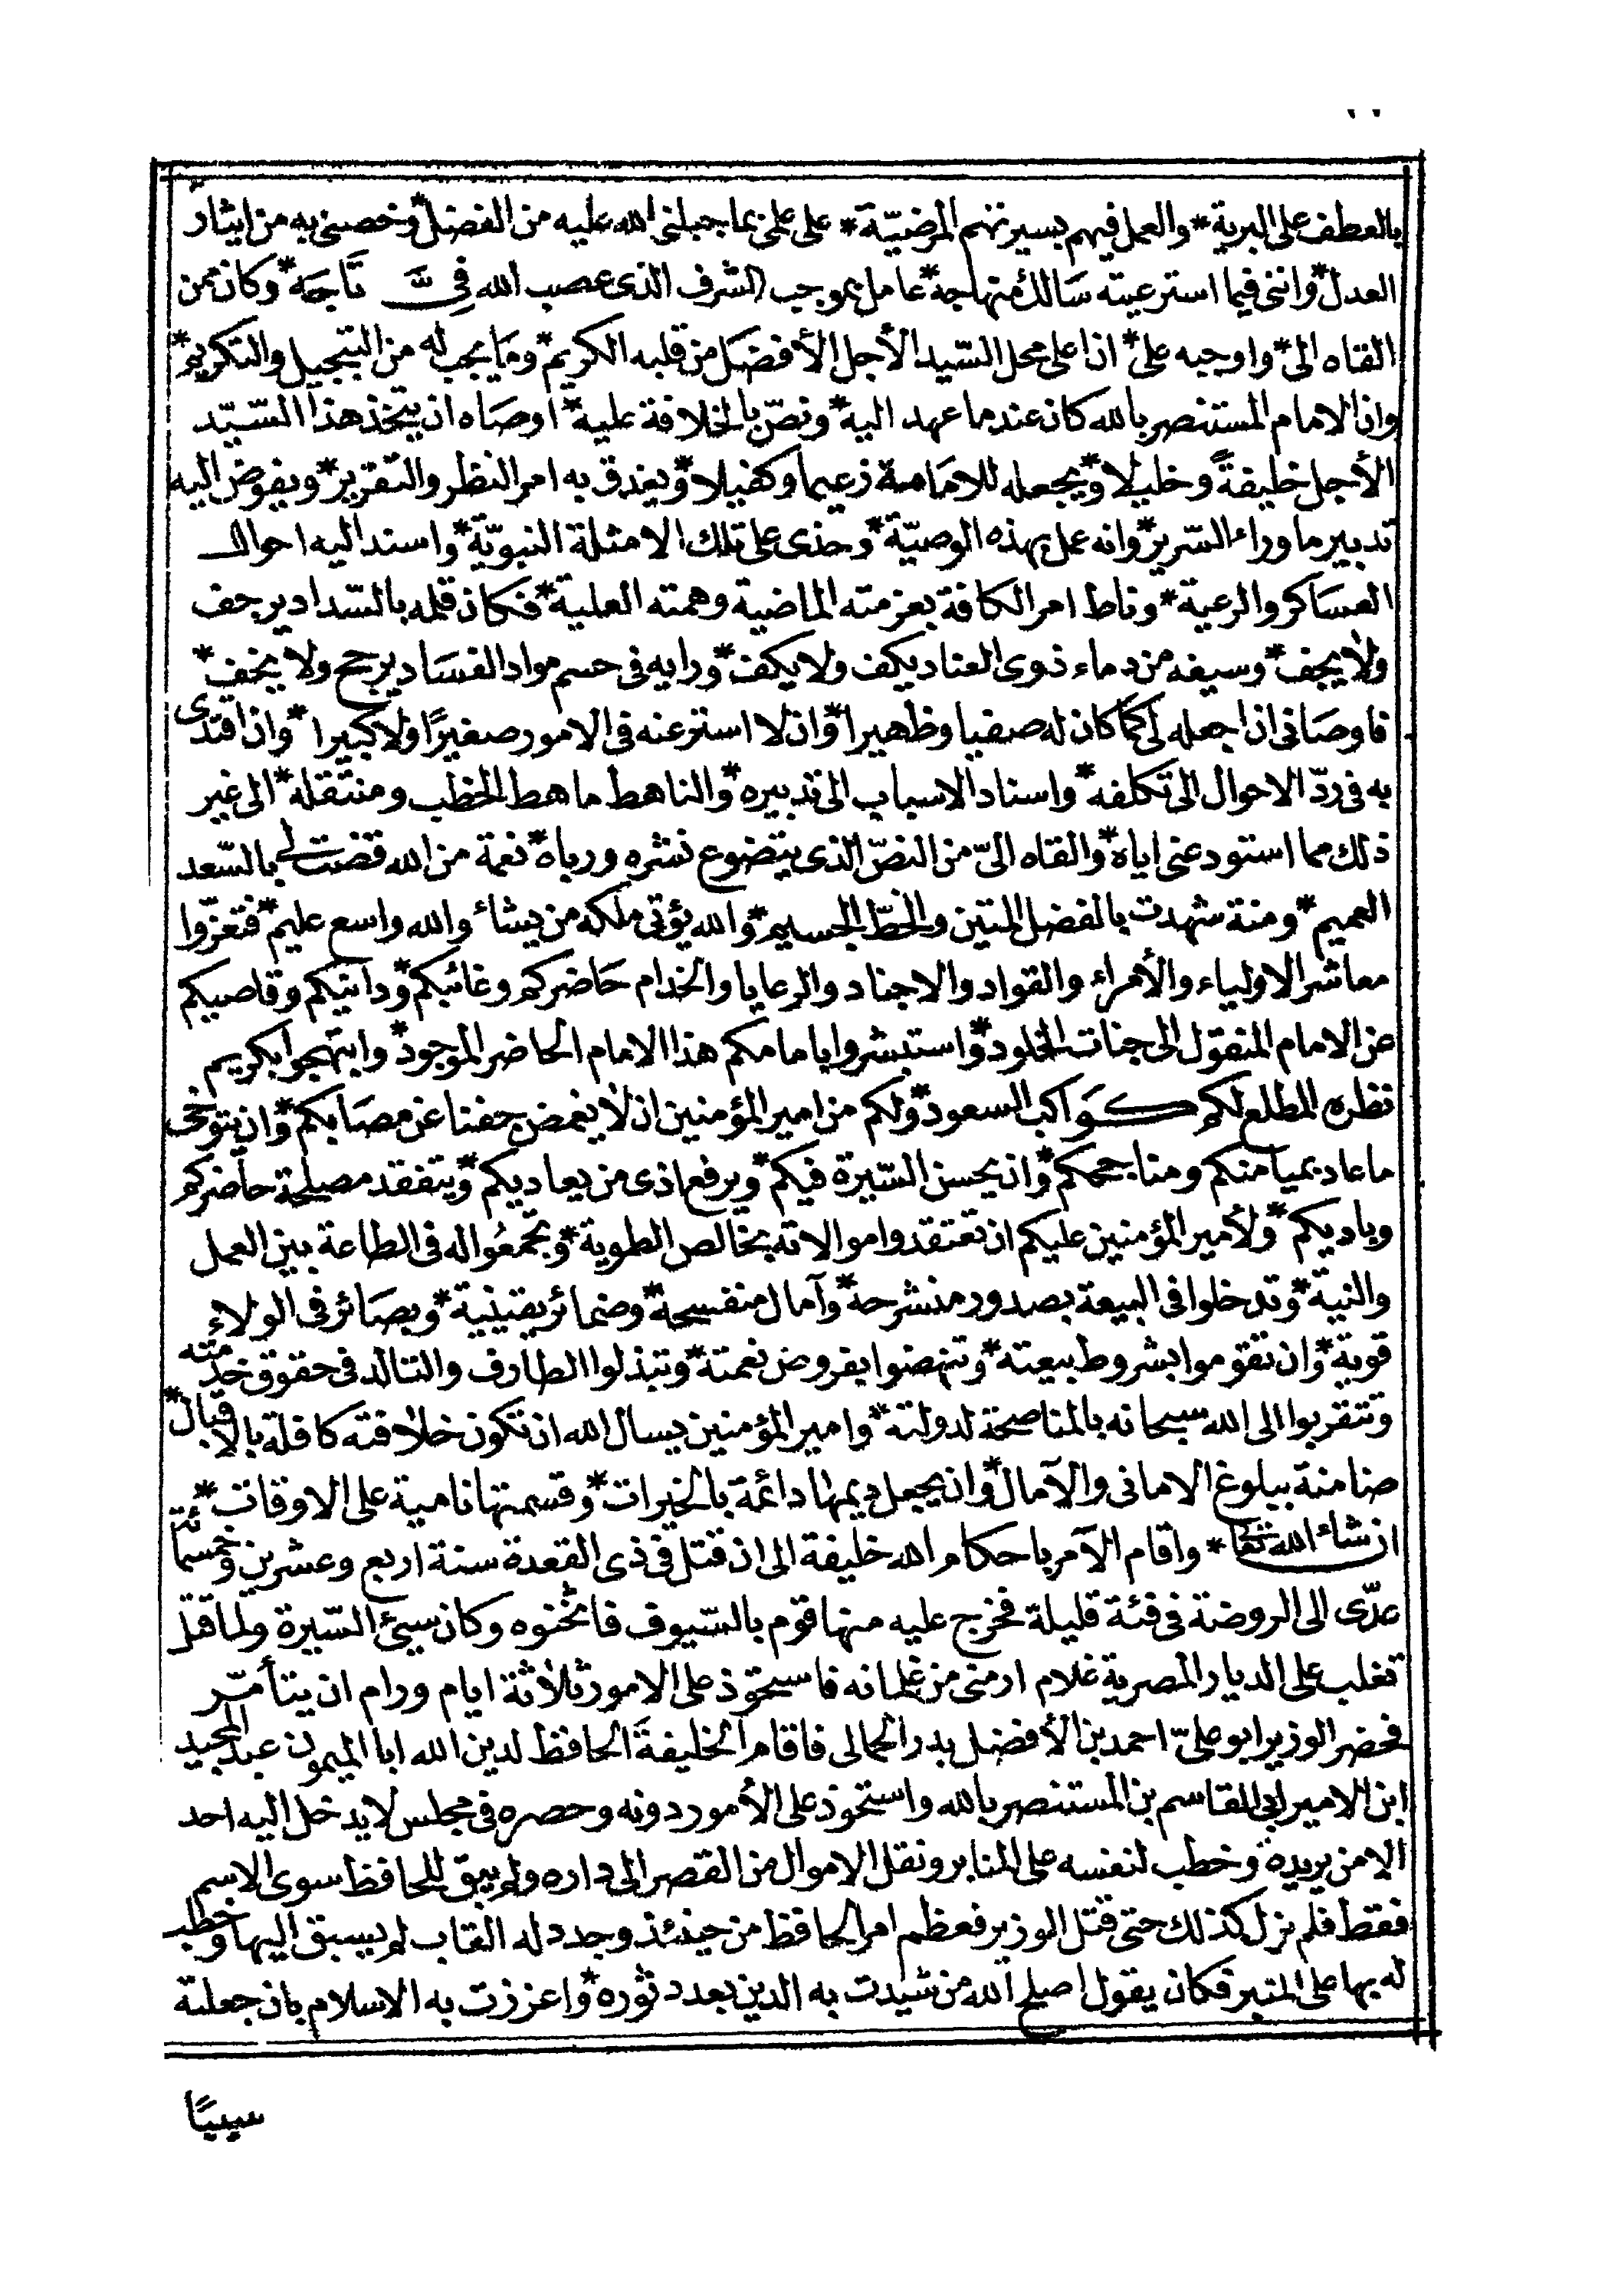 بالعطف على البرية * والعمل فيهم بسيرتهم المرضيّة * على علمى بما جبلنى الله عليه من الفضل * وخصنى به من ايثار
العدل * واننى فيما استرعيته سالك منهاجه * عامل بموجب الشرف الذى عصب الله فى تاجه * وكان ممن
القاه الىّ * واوجبه علىّ * ان اعلى محل السّيد الأجل الأفضل من قلبه الكريم * وما يجب له من التبجيل والتكريم *
وان الامام المستنصر بالله كان عندما عهد اليه * ونصّ بالخلافة عليه * اوصاه ان يتخذ هذا السّيّد
الأجل خليفةً وخليلا * ويجعله للامامة زعيما وكفيلا * ويغدق به امر النظر والتقرير * ويفوض اليه
تدبير ما وراء السّرير * وانه عمل بهذه الوصيّة * وحذى على تلك الامثلة النبويّة * واسند اليه احوال
العساكر والرعية * وناط امر الكافة بعزمته الماضية وهمته العلية * فكان قلمه بالسّداد يرجف
ولا يجف * وسيفه من دماء ذوى العناد يكف ولا يكف * ورايه فى حسم مواد الفساد يرجح ولا يخف *
فاوصانى ان اجعله لى كما كان له صفيا وظهيرا * وان لا استر عنه فى الامور صغيرًا ولا كبيرا * وان اقتدى
به فى ردّ الاحوال الى تكلفه * واسناد الاسباب الى تدبيره * والناهط ماهط الخطب ومنتقله * الى غير
ذلك مما استودعنى اياه * والقاه الىّ من النصّ الذى يتضوع نشره ورياه * نعمة من الله قضت لى بالسّعد
العميم * ومنة شهدت بالفضل المتين والحظّ الجسيم * والله يؤتى ملكه من يشاء والله واسع عليم * فتعزّوا
معاشر الاولياء والأمراء والقواد والاجناد والرعايا والخدام حاضركم وغائبكم * ودانيكم وقاصيكم
عن الامام المنقول الى جنات الخلود * واستبشروا بامامكم هذا الامام الحاضر الموجود * وابتهجوا بكريم
نظره المطلع لكم كواكب السعود * ولكم من امير المؤمنين ان لا يغمض جفنا عن مصابكم * وان يتوخى
ما عاد بميامنكم ومناجحكم * وان يحسن السّيرة فيكم * ويرفع اذى من يعاديكم * ويتفقد مصلحة حاضركم
وباديكم * ولأمير المؤمنين عليكم ان تعتقدوا موالاته بخالص الطوية * وتجمعوا له فى الطاعة بين العمل
والنية * وتدخلوا فى البيعة بصدور منشرحة * وآمال منفسحة * وضمائر يقينية * وبصائر فى الولاء
قوية * وان تقوموا بشروط بيعته * وتنهضوا بفروض نعمته * وتبذلوا الطارف والتالد فى حقوق خدمته
وتتقربوا الى الله سبحانه بالمناصحة لدولته * وامير المؤمنين يسال الله ان تكون خلافته كافلة بالاقبال *
ضامنة ببلوغ الامانى والآمال * وان يجعل ديمها دائمة بالخيرات * وقسمتها نامية على الاوقات *
ان شاء الله تعا * واقام الآمر باحكام الله خليفة الى ان قتل فى ذى القعدة سنة اربع وعشرين وخمسمائة
عدّى الى الروضة فى فئة قليلة فخرج عليه منها قوم بالسّيوف فاثخنوه وكان سيئ السّيرة ولما قتل
تغلب على الديار المصرية غلام ارمنى من غلمانه فاستحوذ على الامور ثلاثة ايام ورام ان يتأمّر
فحضر الوزير ابو علىّ احمد بن الأفضل بدر الجمالى فاقام الخليفة الحافظ لدين الله ابا الميمون عبد المجيد
ابن الامير ابى القاسم بن المستنصر بالله واستحوذ على الأمور دونه وحصره فى مجلس لا يدخل اليه احد
الا من يريده وخطب لنفسه على المنابر ونقل الاموال من القصر الى داره ولم يبق للحافظ سوى الاسم
فقط فلم يزل كذلك حتى قتل الوزير فعظم امر الحافظ من حينئذ وجدد له القاب لم يسبق اليها وخطب
له بها على المنبر فكان يقول اصلح الله من شيدت به الدين بعد دثوره * واعززت به الاسلام بان جعلته
سببًا